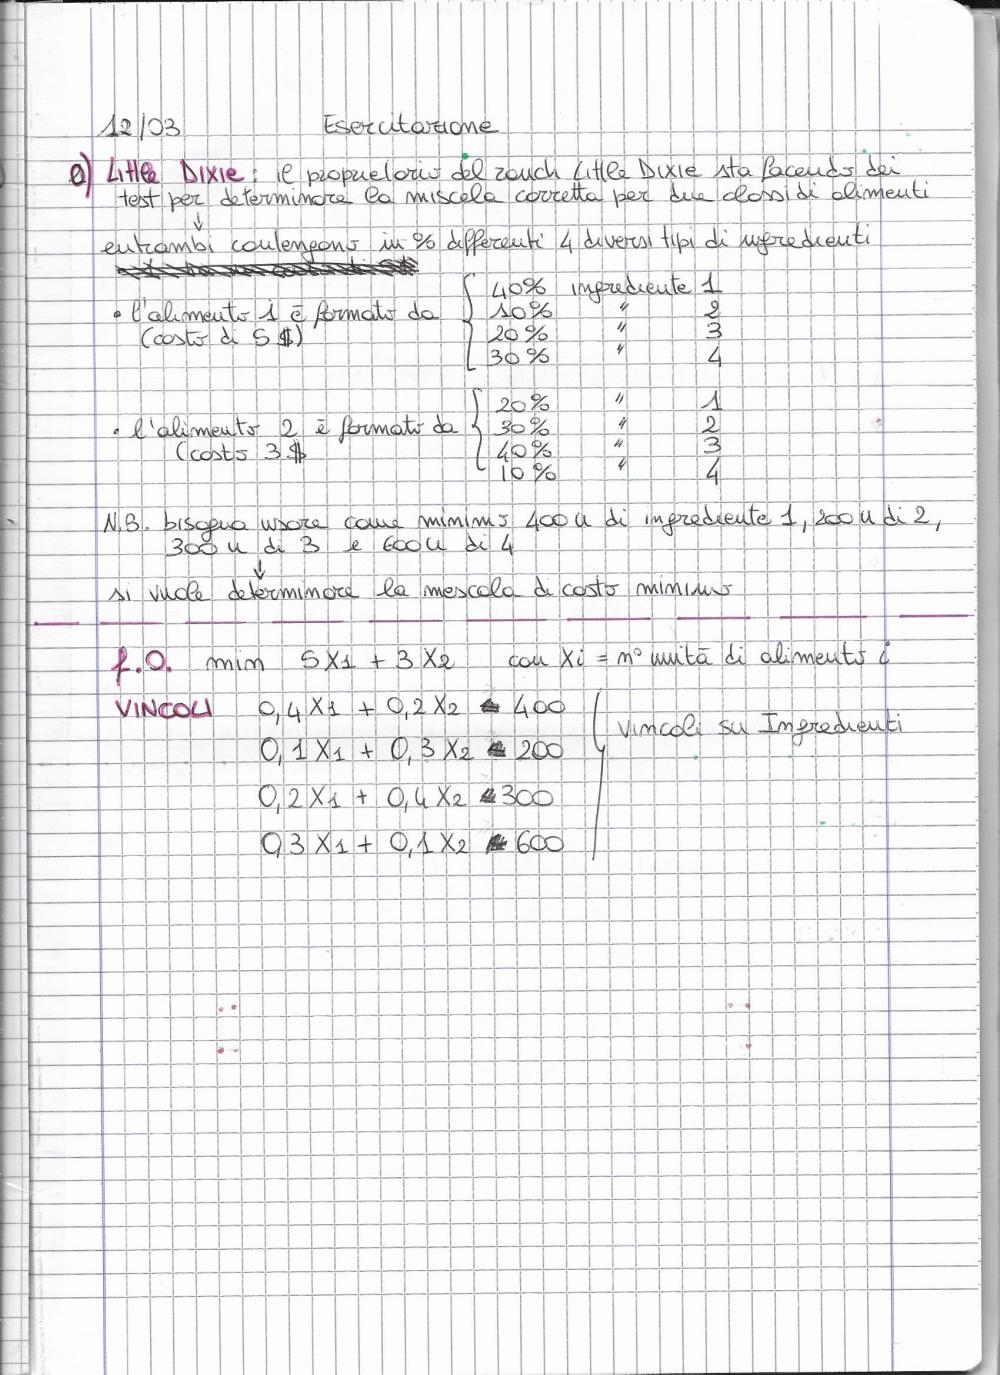 12/03 Esercitazione
a) Little Dixie: il proprietario del ranch Little Dixie sta facendo dei
test per determinare la miscela corretta per due classi di alimenti
↓
entrambi contengono in % differenti 4 diversi tipi di ingredienti
• l'alimento 1 è formato da
(costo di 5 $)
40% ingrediente 1
10% " 2
20% " 3
30% " 4
• l'alimento 2 è formato da
(costo 3 $
20% " 1
30% " 2
40% " 3
10% " 4
N.B. bisogna usare come minimo 400 u di ingrediente 1, 200 u di 2,
300 u di 3 e 600 u di 4
↓
si vuole determinare la mescola di costo minimo
f.O. min 5X1 + 3X2 con Xi = n° unità di alimento i
VINCOLI 0,4X1 + 0,2X2 400
0,1X1 + 0,3X2 200
0,2X1 + 0,4X2 300
0,3X1 + 0,1X2 600
vincoli su Ingredienti